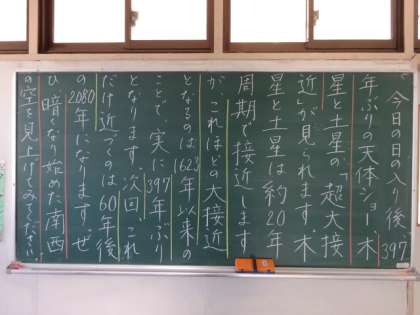 今日の日の入り後、397
年ぶりの天体ショー、木
星と土星の「超大接
近」が見られます。木
星と土星は約20年
周期で接近します
が、これほどの大接近
となるのは1623年以来の
ことで、実に397年ぶり
となります。次回、これ
だけ近づくのは60年後
の2080年になります。ぜ
ひ、暗くなり始めた南西
の空を見上げてみてください。